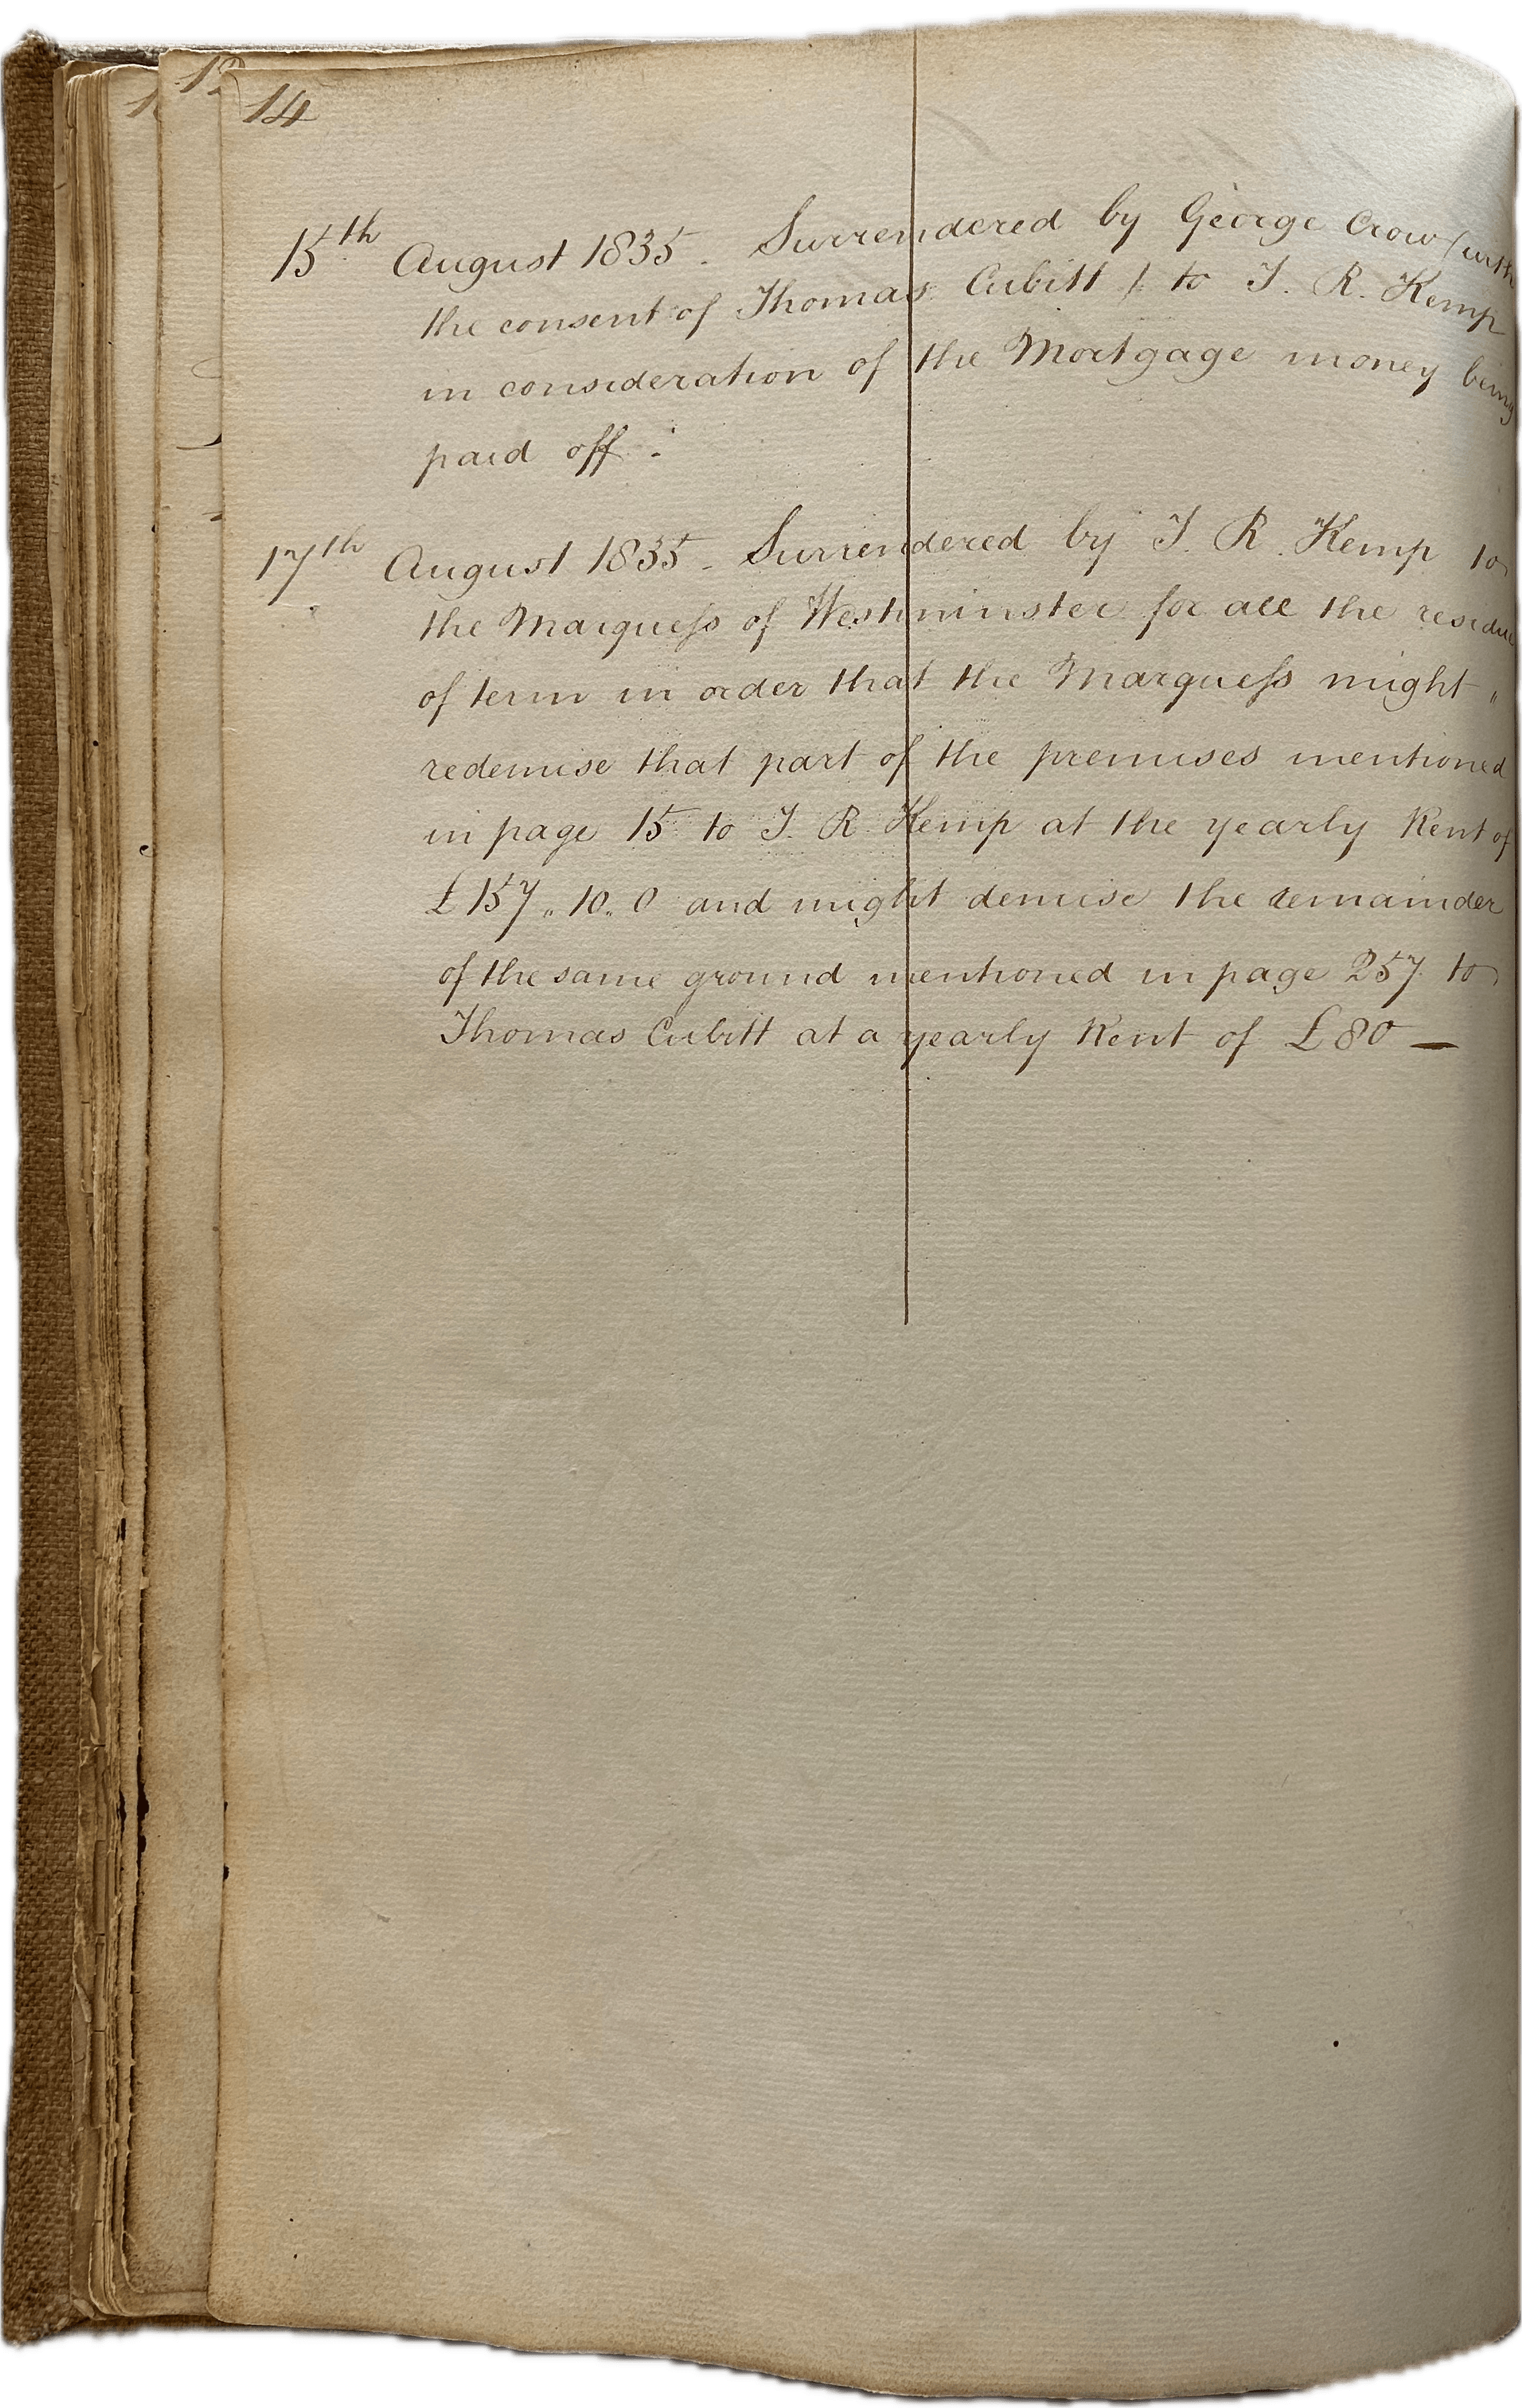 12
14
15th August 1835. Surrendered by George Crow (with
the consent of Thomas Cubitt) to T. R. Kemp
in consideration of the Mortgage money being
paid off.
17th August 1835. Surrendered by T. R. Kemp to
the Marquess of Westminster for all the residue
of term in order that the Marquess might
redemise that part of the premises mentioned
in page 15 to T. R. Kemp at the yearly Rent of
£157„10„0 and might demise the remainder
of the same ground mentioned in page 257 to
Thomas Cubitt at a yearly Rent of £80 —